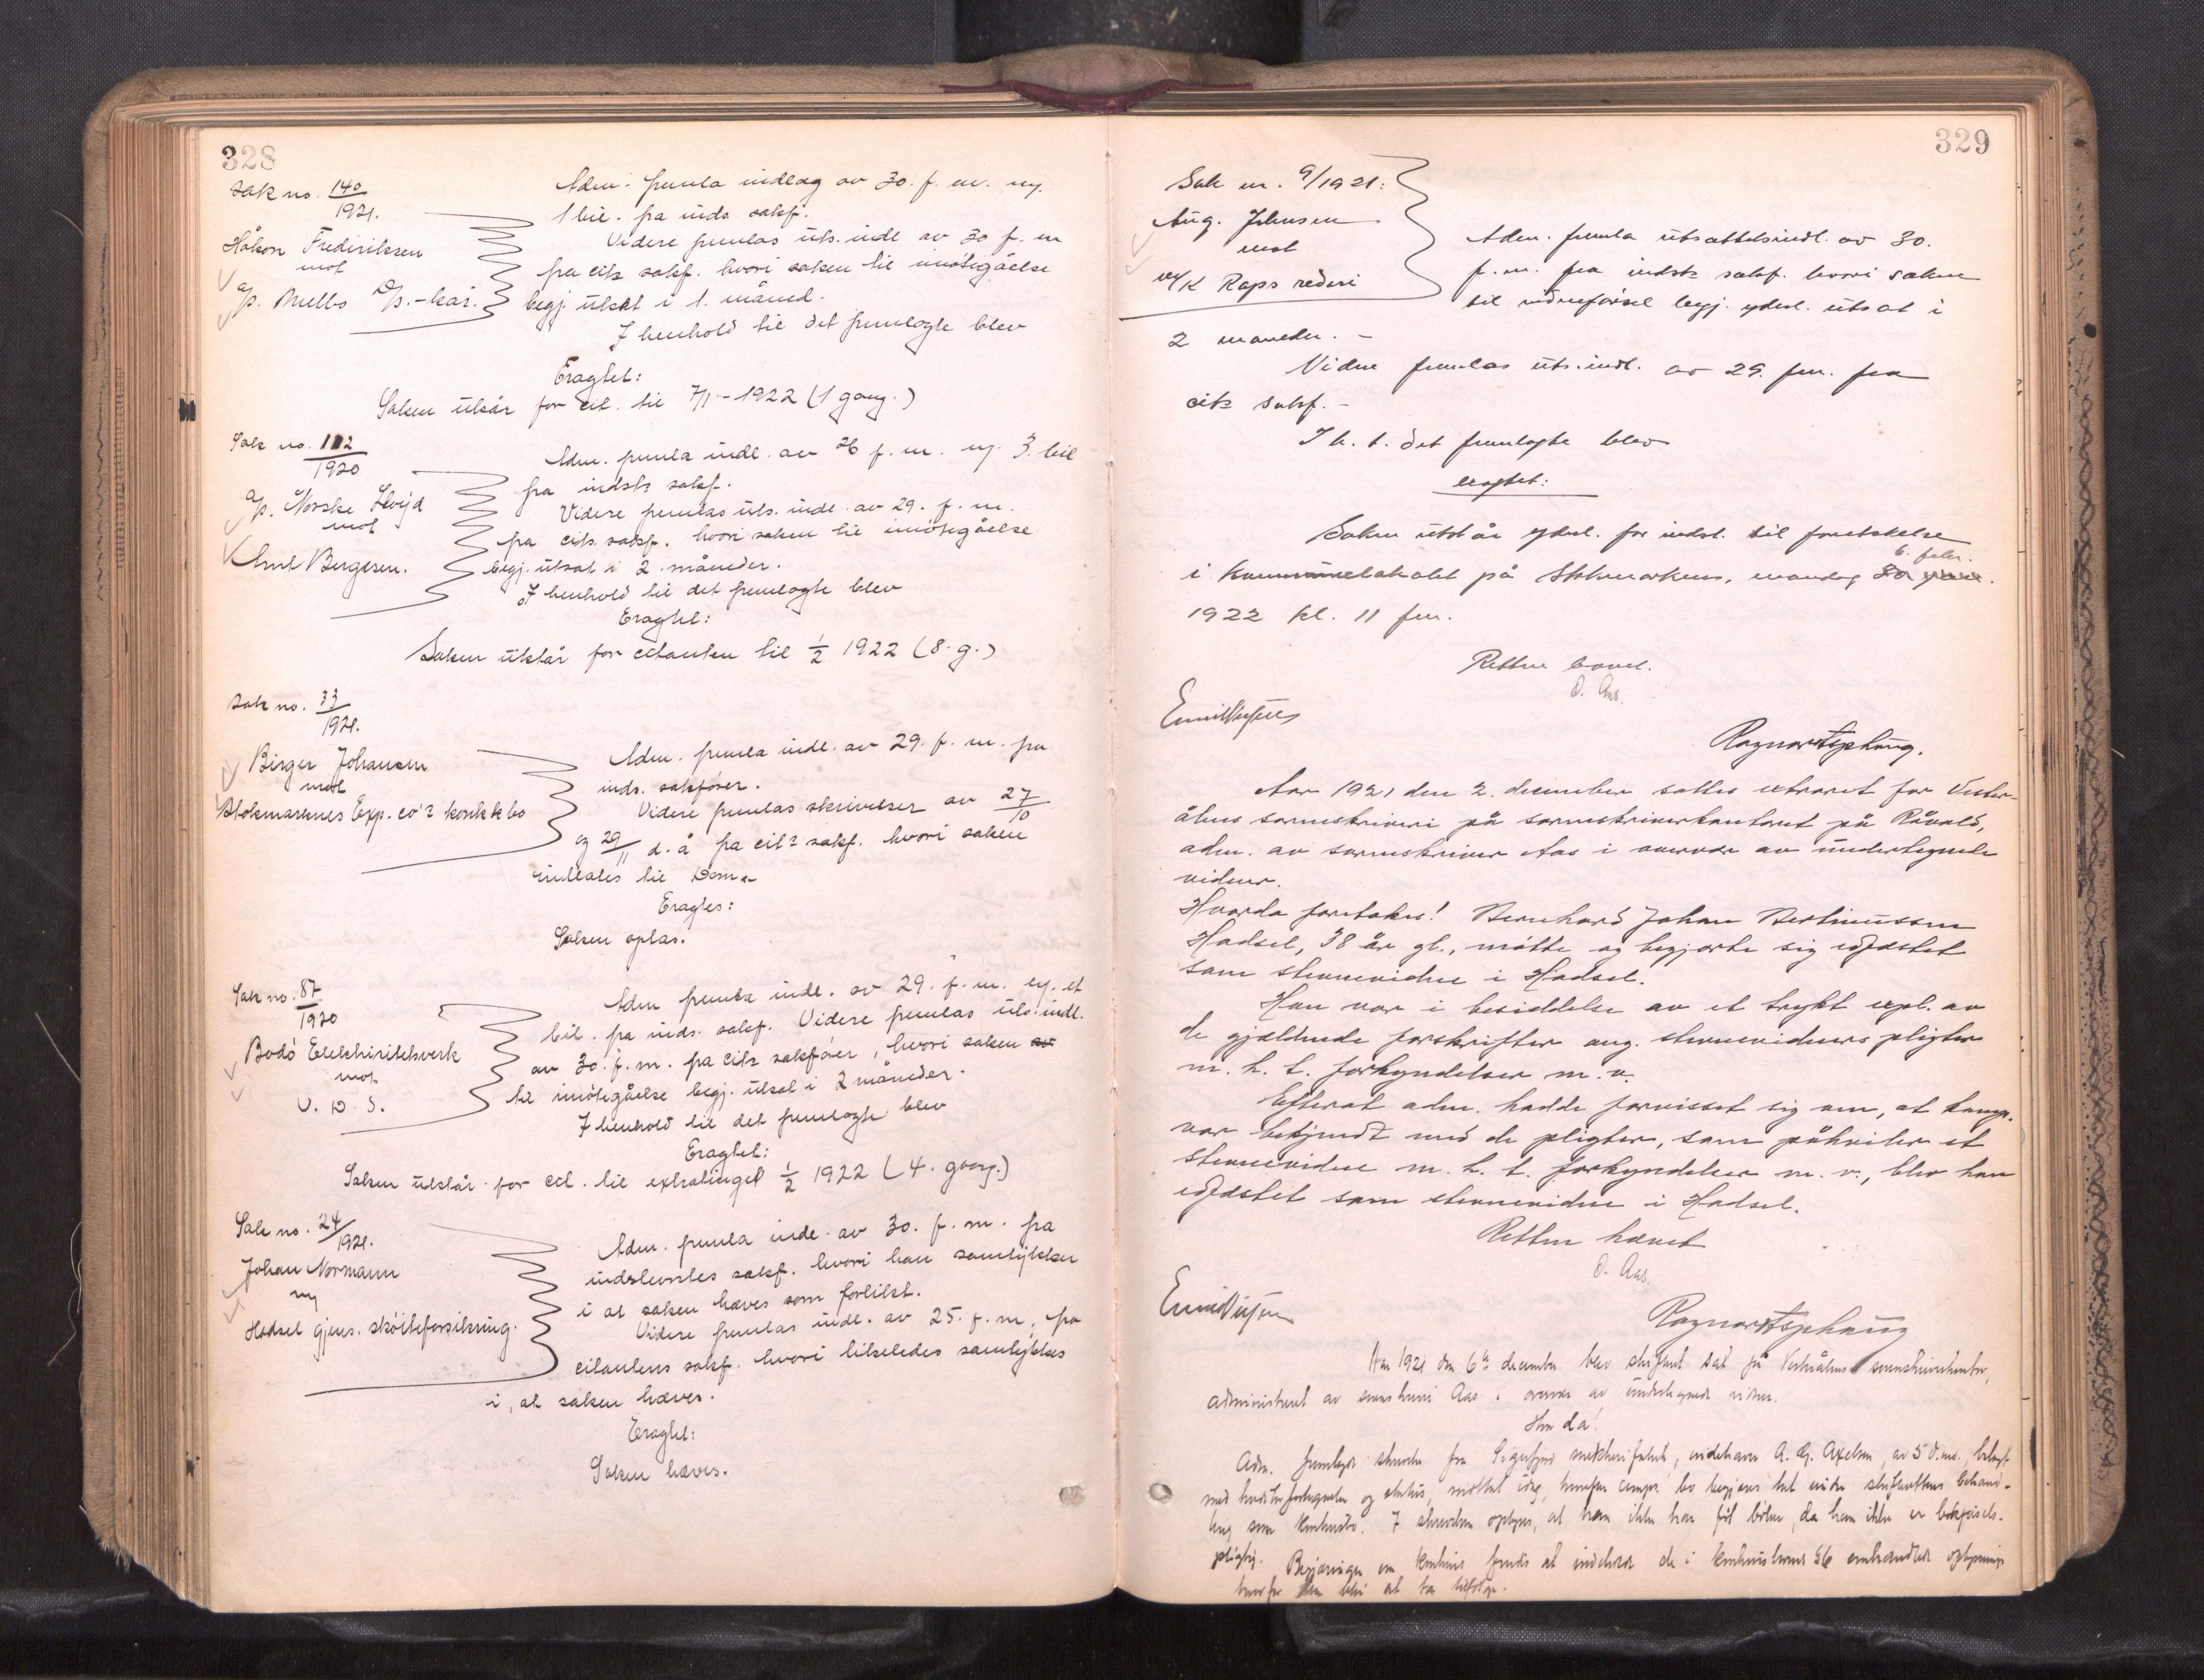 328
Sak no. 140/1921.
Håkon Fredriksen
mot
A/s. Melbo D/s.-kai.
Adm. fremla indlæg av 30. f. m. m/
1 bil. fra inds sakf.
Videre fremlas uts. indl av 30 f. m
fra cits sakf. hvori saken til imötegåelse
begj. utsat i 1. måned.
I henhold til det fremlagte blev
Eragtet:
Saken utstår for cit. til 7/1 - 1922 (1 gang.)
Sak no. 112/1920
A/s. Norske Lloyd
mot
Knut Bergesen.
Adm. fremla indl. av 26 f. m. m/ 3. bil
fra indsts sakf.
Videre fremlas uts. indl. av 29. f. m.
fra cits. sakf. hvori saken til imötegåelse
begj. utsat i 2. måneder.
I henhold til det fremlagte blev
Eragtet:
Saken utstår for citanten til 1/2 1922 (8. g.)
Sak no. 33/1921.
Birger Johansen
mot
Stokmarknes Exp. co's konk bo
Adm. fremla indl. av 29. f. m. fra
inds. sakförer.
Videre fremlas skrivelser av 27/10
og 29/11 d. å fra cits sakf. hvori saken
indlates til Dom.
Eragtes:
Saken optas.
Sak no. 87/1920
Bodö Elektricitetsverk
mot
V. D. S.
Adm fremla indl. av 29. f. m. m/ et
bil. fra inds. sakf. Videre fremlas uts. indl.
av 30. f. m. fra cits sakförer, hvori saken av
til imötegåelse begj. utsat i 2 måneder.
I henhold til det fremlagte blev
Eragtet:
Saken utstår for cit. til extratinget 1/2 1922 (4. gang.)
Sak no. 24/1921.
Johan Normann
m/
Hadsel gjens. sköiteforsikring.
Adm. fremla indl. av 30. f. m. fra
indstevntes sakf. hvori han samtykker
i at saken hæves som forlikt.
Videre fremlas indl. av 25. f. m, fra
citantens sakf. hvori likeledes samtykkes
i, at saken hæves.
Eragtet:
Saken hæves.
329
Sak nr. 9/1921:
Aug. Johnsen
mot
M/K Raps rederi
Adm. fremla utsættelsesindl. av 30.
f. m. fra indsts sakf. hvori saken
til vidneförsel begj. yderl. utsat i
2 maaneder. -
Videre fremlas uts. indl. av 29. fm. fra
cits sakf. -
I h. t. det fremlagte blev
eragtet:
Saken utstår yderl. for indst. til foretakelse
i Kommunelokalet på Stokmarknes, mandag 30 jan. 6. febr.
1922 kl. 11 fm.
Retten hævet.
O. Aas.
Ragnar Asphaug.
Aar 1921 den 2. december sattes extraret for Vester-
ålens sorenskriveri på sorenskriverkontoret på Råvald,
adm. av sorenskriver Aas i overvær av undertegnede
vidner.
Hvorda foretokes! Bernhard Johan Bertinussen
Hadsel, 38 år gl., mötte og begjærte sig edfæstet
som stevnevidne i Hadsel.
Han var i besiddelse av et trykt expl. av
de gjældende forskrifter ang. stevnevidners pligter
m. h. t. forkyndelser m. v.
Efterat adm. hadde forvisset sig om, at komp.
var bekjendt med de pligter, som påhviler et
stevnevidne m. h. t. forkyndelser m. v., blev han
edfæstet som stevnevidne i Hadsel.
Retten hævet
O. Aas.
Ragnar Asphaug
Aar 1921 den 6te december blev skifteret sat på Vesterålens sorenskriverkontor,
administreret av sorenskriver Aas i overvær av undertegnede vidner.
Hvor da!
Adm. fremlagde skrivelse fra Sigerfjord mek. , indehaver A. G. Axelsen, av 5 d. m., bilagt
med kreditorfortegnelse og status, mottat idag, hvorefter comps. bo begjæres tat under skifterettens behand-
ling som konkursbo. I skrivelsen oplyses, at han ikke har fört böker, da han ikke er bokförsels-
pligtig. Begjæringen om konkurs fandtes at indeholde de i konkurslovens § 6 omhandlede oplysninger
hvorfor den blev at ta tilfölge.